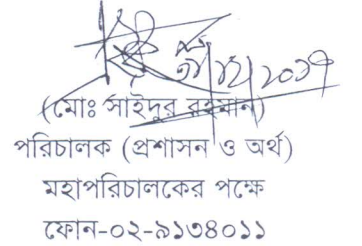 (মোঃ সাইদুর রহমান)
পরিচালক (প্রশাসন ও অর্থ)
মহাপরিচালকের পক্ষে
ফোন-০২-৯১৩৪০১১